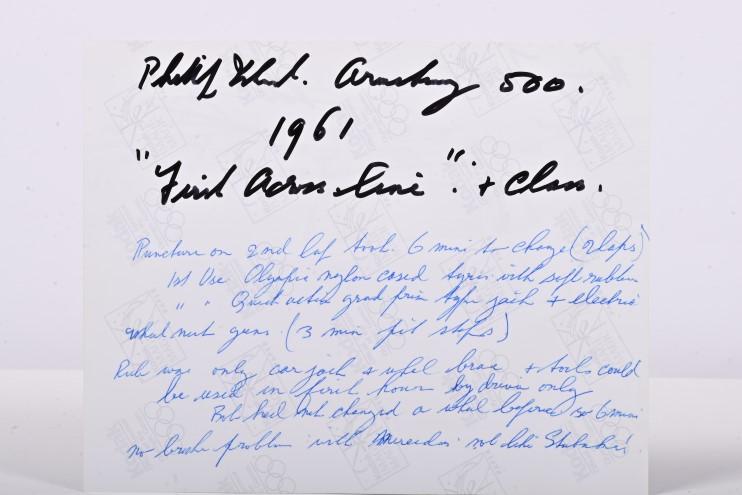 Phillip Island. Armstrong 500.
1961
"First Across Line". + Class.
Puncture on 2nd lap took. 6 mins to change (2 laps)
1st Use Olympic nylon cased tyres with soft rubber
" " Quick action grand prix type jack + electric
wheel nut guns (3 min pit stops)
Rule was only car jack & wheel brace + tools could
be used in first hour by driver only
Bob had not changed a wheel before so 6 mins
no brake problem with Mercedes not like Studebaker!